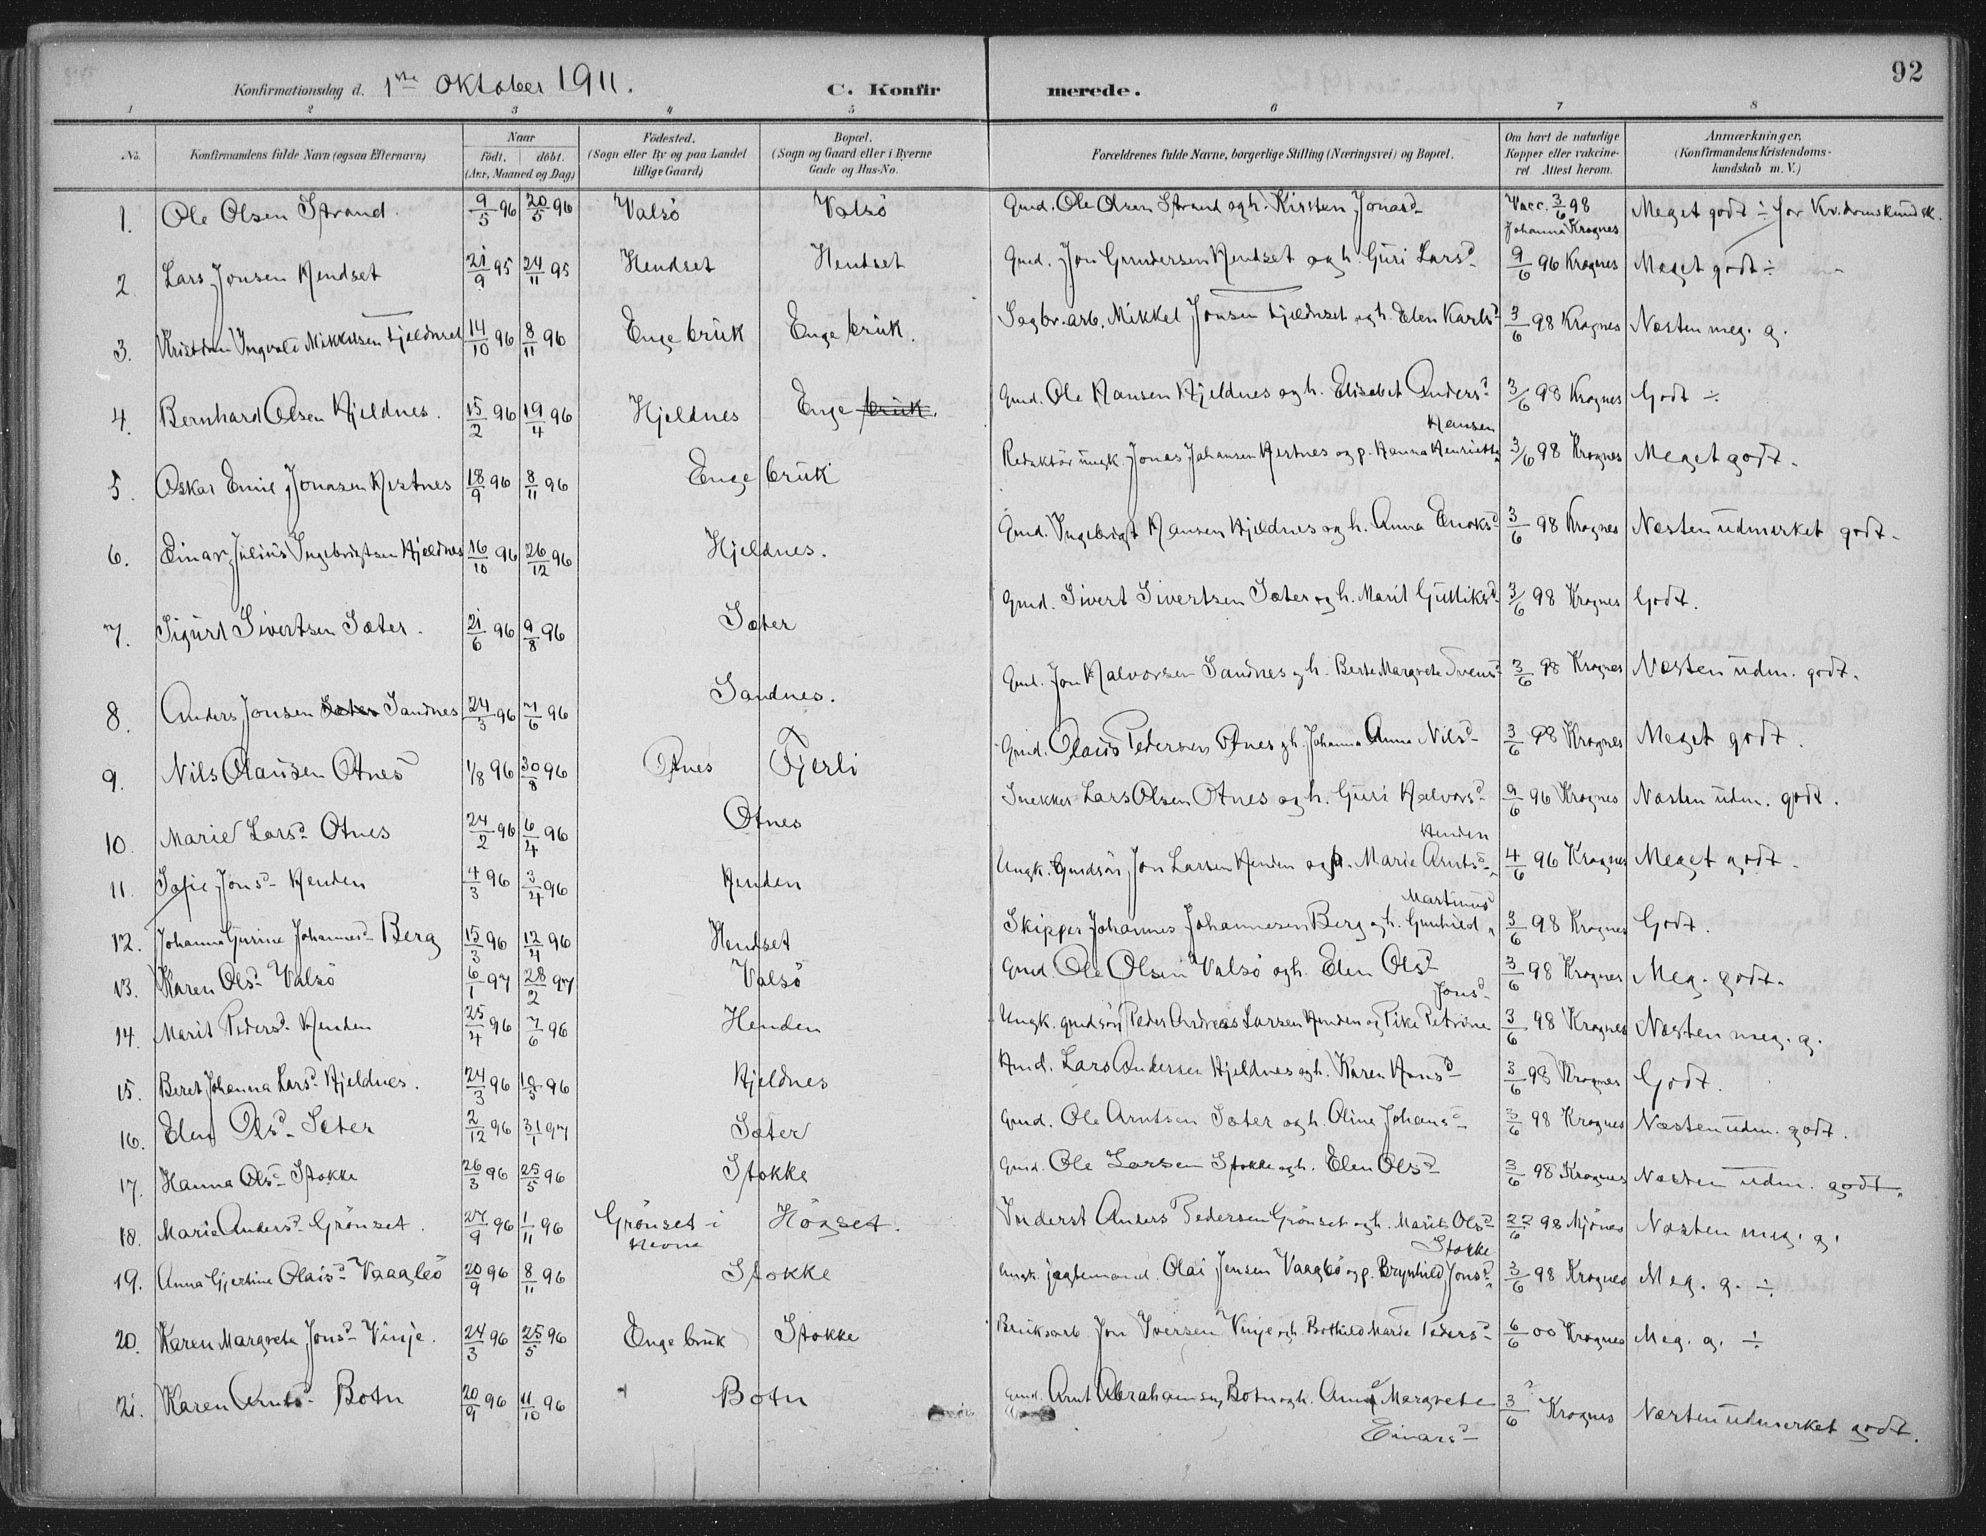 92
Konfirmationsdag d. 1ste Oktober 1911. C. Konfirmerede.
1 2 3 4 5 6 7 8
No. Konfirmandens fulde Navn (ogsaa Efternavn) Naar født. døbt. (Aar, Maaned og Dag) Fødested. (Sogn eller By og paa Landet tillige Gaard) Bopæl. (Sogn og Gaard eller i Byerne Gade og Hus-No. Forældrenes fulde Navne, borgerlige Stilling (Næringsvei) og Bopæl. Om havt de naturlige Kopper eller vakcineret. Attest herom. Anmærkninger. (Konfirmandens Kristendomskundskab m. V.)
1. Ole Olsen Strand. 9/5 96 20/5 96 Valsö Valsö Gmd. Ole Olsen Strand og h. Kirsten Jonasd. Vacc. 3/6 98 Johanna Krognes Meget godt ÷ for Kr.domskundsk.
2. Lars Jonsen Hendset 21/9 95 24/11 95 Hendset Hendset Gmd. Jon Gundersen Hendset og h. Guri Larsd. 9/6 96 Krognes Meget godt ÷
3. Kristian Ingvald Mikkelsen Fjeldnset 14/10 96 8/11 96 Enge bruk Enge bruk. Sagbr.arb. Mikkel Jonsen Fjeldnset og h. Elen Karlsd. 3/6 98 Krognes Næsten meg. g.
4. Bernhard Olsen Hjeldnes. 15/2 96 19/4 96 Hjeldnes Enge bruk. Gmd. Ole Hansen Hjeldnes og h. Elisabet Andersd. 3/6 98 Krognes Godt ÷
5. Oskar Emil Jonasen Hestnes 18/9 96 8/11 96 Enge bruk Redaktör ungk. Jonas Johansen Hestnes og p. Hanna Henriette Hansen 3/6 98 Krognes Meget godt.
6. Einar Julius Ingebrigtsen Hjeldnes 16/10 96 26/12 96 Hjeldnes. Gmd. Ingebrigt Hansen Hjeldnes og h. Anna Enoksd. 3/6 98 Krognes Næsten udmerket godt.
7. Sigurd Sivertsen Sæter. 21/6 96 9/8 96 Sæter Gmd. Sivert Sivertsen Sæter og h. Marit Gulliksd. 3/6 98 Krognes Godt.
8. Anders Jonsen Sæter Sandnes 24/3 96 7/6 96 Sandnes. Gmd. Jon Halvorsen Sandnes og h. Berte Margrete Svensd. 3/6 98 Krognes Næsten udm. godt.
9. Nils Olausen Otnes 1/8 96 30/8 96 Otnes Fjerli Gmd. Olaus Pedersen Otnes og h. Johanna Anna Nilsd. 3/6 98 Krognes Meget godt.
10. Marie Larsd. Otnes 24/2 96 6/4 96 Otnes Snekker Lars Olsen Otnes og h. Guri Halvorsd. 9/6 96 Krognes Næsten udm. godt.
11. Sofie Jonsd. Henden 4/3 96 3/4 96 Henden Ungk. Gmdsön Jon Larsen Henden og p. Marie Arntsd. Henden 4/6 96 Krognes Meget godt.
12. Johanna Gurine Johannesd. Berg 15/3 96 12/4 96 Hendset Skipper Johannes Johannesen Berg og h. Gunhild Martinusd. 3/6 98 Krognes Godt.
13. Karen Olsd. Valsö 6/1 97 28/2 97 Valsö Gmd. Ole Olsen Valsö og h. Elen Olsd. 3/6 98 Krognes Meg. godt.
14. Marit Pedersd. Henden 25/4 96 7/6 96 Henden Ungk. gmdsön Peder Andreas Larsen Henden og Pike Petrine Jonsd. 3/6 98 Krognes Næsten meg. g.
15. Beret Johanna Larsd. Hjeldnes. 24/3 96 10/5 96 Hjeldnes Hmd. Lars Andersen Hjeldnes og h. Karen Hansd. 3/6 98 Krognes Godt.
16. Elen Olsd. Sæter 2/12 96 31/1 97 Sæter Gmd. Ole Arntsen Sæter og h. Oline Johansd. 3/6 98 Krognes Næsten udm. godt.
17. Hanna Olsd. Stokke 26/3 96 25/5 96 Stokke Gmd. Ole Larsen Stokke og h. Elen Olsd. 3/6 98 Krognes Næsten udm. godt.
18. Marie Andersd. Grönset. 27/9 96 1/11 96 Grönset i Hevne Högset. Inderst Anders Pedersen Grönset og h. Marit Olsd. 22/6 98 Mjönes Næsten meg. g.
19. Anna Gjertine Olaisd. Vaagbö 20/9 96 8/11 96 Stokke Ungk. jægtemand. Olai Jensen Vaagbö og p. Brynhild Jonsd. Stokke 3/6 98 Krognes Meg. g. ÷
20. Karen Margrete Jonsd. Vinje. 24/3 96 25/5 96 Enge bruk Stokke Bruksarb. Jon Iversen Vinje og h. Bothild Marie Pedersd. 6/6 00 Krognes Meg. g. ÷
21. Karen Arntsd. Botn 20/9 96 11/10 96 Botn Gmd. Arnt Abrahamsen Botn og h. Anne Margrete Einarsd. 3/6 ? Krognes Næsten udmerket godt.